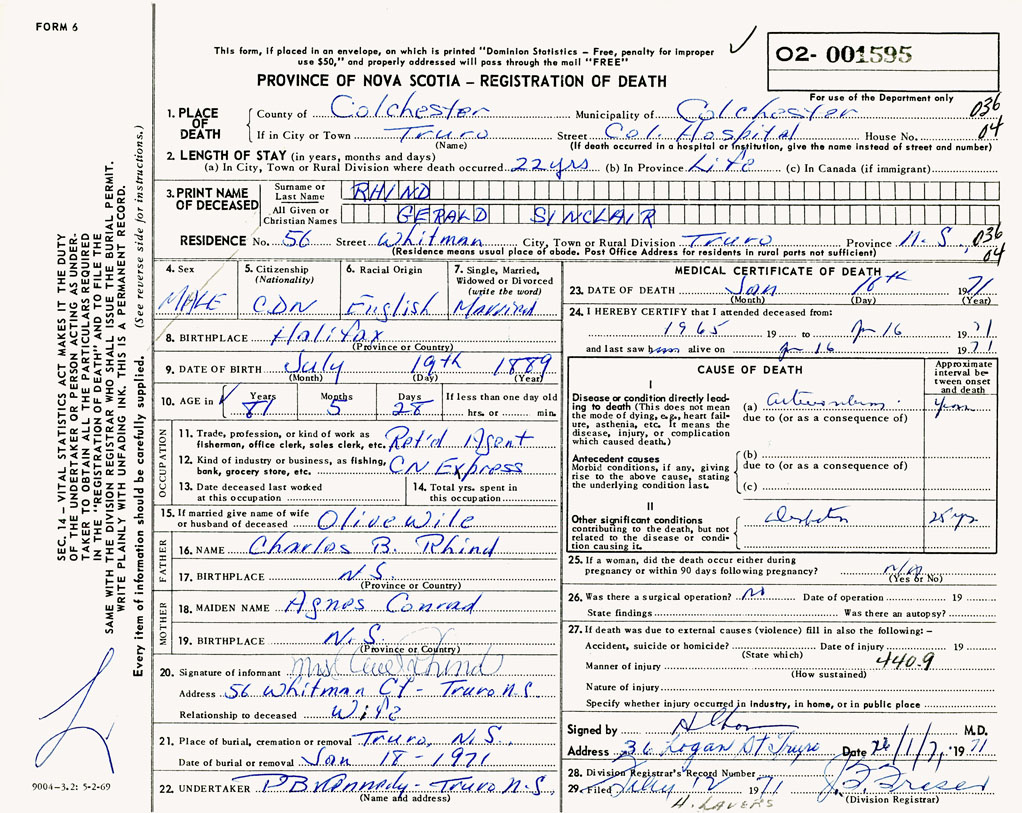 FORM 6
This form, if placed in an envelope, on which is printed "Dominion Statistics – Free, penalty for improper
use $50," and properly addressed will pass through the mail "FREE"
02- 001595
PROVINCE OF NOVA SCOTIA – REGISTRATION OF DEATH
For use of the Department only
1. PLACE OF DEATH
County of Colchester Municipality of Colchester 036
If in City or Town Truro Street Col. Hospital House No. 04
(Name) (If death occurred in a hospital or institution, give the name instead of street and number)
2. LENGTH OF STAY (in years, months and days)
(a) In City, Town or Rural Division where death occurred 22 yrs (b) In Province Life (c) In Canada (if immigrant)
3. PRINT NAME OF DECEASED
Surname or Last Name RHIND
All Given or Christian Names GERALD SINCLAIR
RESIDENCE No. 56 Street Whitman City, Town or Rural Division Truro Province N.S., 036
(Residence means usual place of abode. Post Office Address for residents in rural parts not sufficient) 04
4. Sex
MALE
5. Citizenship (Nationality)
CDN
6. Racial Origin
English
7. Single, Married, Widowed or Divorced (write the word)
Married
8. BIRTHPLACE Halifax
(Province or Country)
9. DATE OF BIRTH July 19th 1889
(Month) (Day) (Year)
10. AGE in Years Months Days If less than one day old
81 5 28 hrs. or min.
OCCUPATION
11. Trade, profession, or kind of work as
fisherman, office clerk, sales clerk, etc. Ret'd Agent
12. Kind of industry or business, as fishing,
bank, grocery store, etc. CN Express
13. Date deceased last worked
at this occupation
14. Total yrs. spent in
this occupation
15. If married give name of wife
or husband of deceased Olive Wile
FATHER
16. NAME Charles B. Rhind
17. BIRTHPLACE N.S.
(Province or Country)
MOTHER
18. MAIDEN NAME Agnes Conrad
19. BIRTHPLACE N.S.
(Province or Country)
20. Signature of informant Mrs Rhind
Address 56 Whitman Ct - Truro N.S.
Relationship to deceased Wife
21. Place of burial, cremation or removal Truro, N.S.
Date of burial or removal Jan 18 - 1971
22. UNDERTAKER Truro N.S.
(Name and address)
MEDICAL CERTIFICATE OF DEATH
23. DATE OF DEATH Jan 16th 1971
(Month) (Day) (Year)
24. I HEREBY CERTIFY that I attended deceased from:
1965 19 to Jan 16 1971
and last saw him alive on Jan 16 1971
CAUSE OF DEATH
Approximate interval between onset and death
I
Disease or condition directly leading
to death (This does not mean
the mode of dying, e.g., heart failure,
asthenia, etc. It means the
disease, injury, or complication
which caused death.)
(a)
due to (or as a consequence of)
Antecedent causes
Morbid conditions, if any, giving
rise to the above cause, stating
the underlying condition last.
(b)
due to (or as a consequence of)
(c)
II
Other significant conditions
contributing to the death, but not
related to the disease or condition
causing it.
25. If a woman, did the death occur either during
pregnancy or within 90 days following pregnancy?
(Yes or No)
26. Was there a surgical operation? No Date of operation 19
State findings Was there an autopsy?
27. If death was due to external causes (violence) fill in also the following: –
Accident, suicide or homicide? Date of injury 19
(State which)
Manner of injury 440.9
(How sustained)
Nature of injury
Specify whether injury occurred in industry, in home, or in public place
Signed by M.D.
Address 36 Logan St Truro Date 1971
28. Division Registrar's Record Number
29. Filed 1971
H. LAVERS
(Division Registrar)
SEC. 14 – VITAL STATISTICS ACT MAKES IT THE DUTY
OF THE UNDERTAKER OR PERSON ACTING AS UNDERTAKER
TO OBTAIN ALL THE PARTICULARS REQUIRED
IN THE "REGISTRATION OF DEATH" AND TO FILE THE
SAME WITH THE DIVISION REGISTRAR WHO SHALL ISSUE THE BURIAL PERMIT.
WRITE PLAINLY WITH UNFADING INK. THIS IS A PERMANENT RECORD.
Every item of information should be carefully supplied. (See reverse side for instructions.)
9004-3.2: 5-2-69